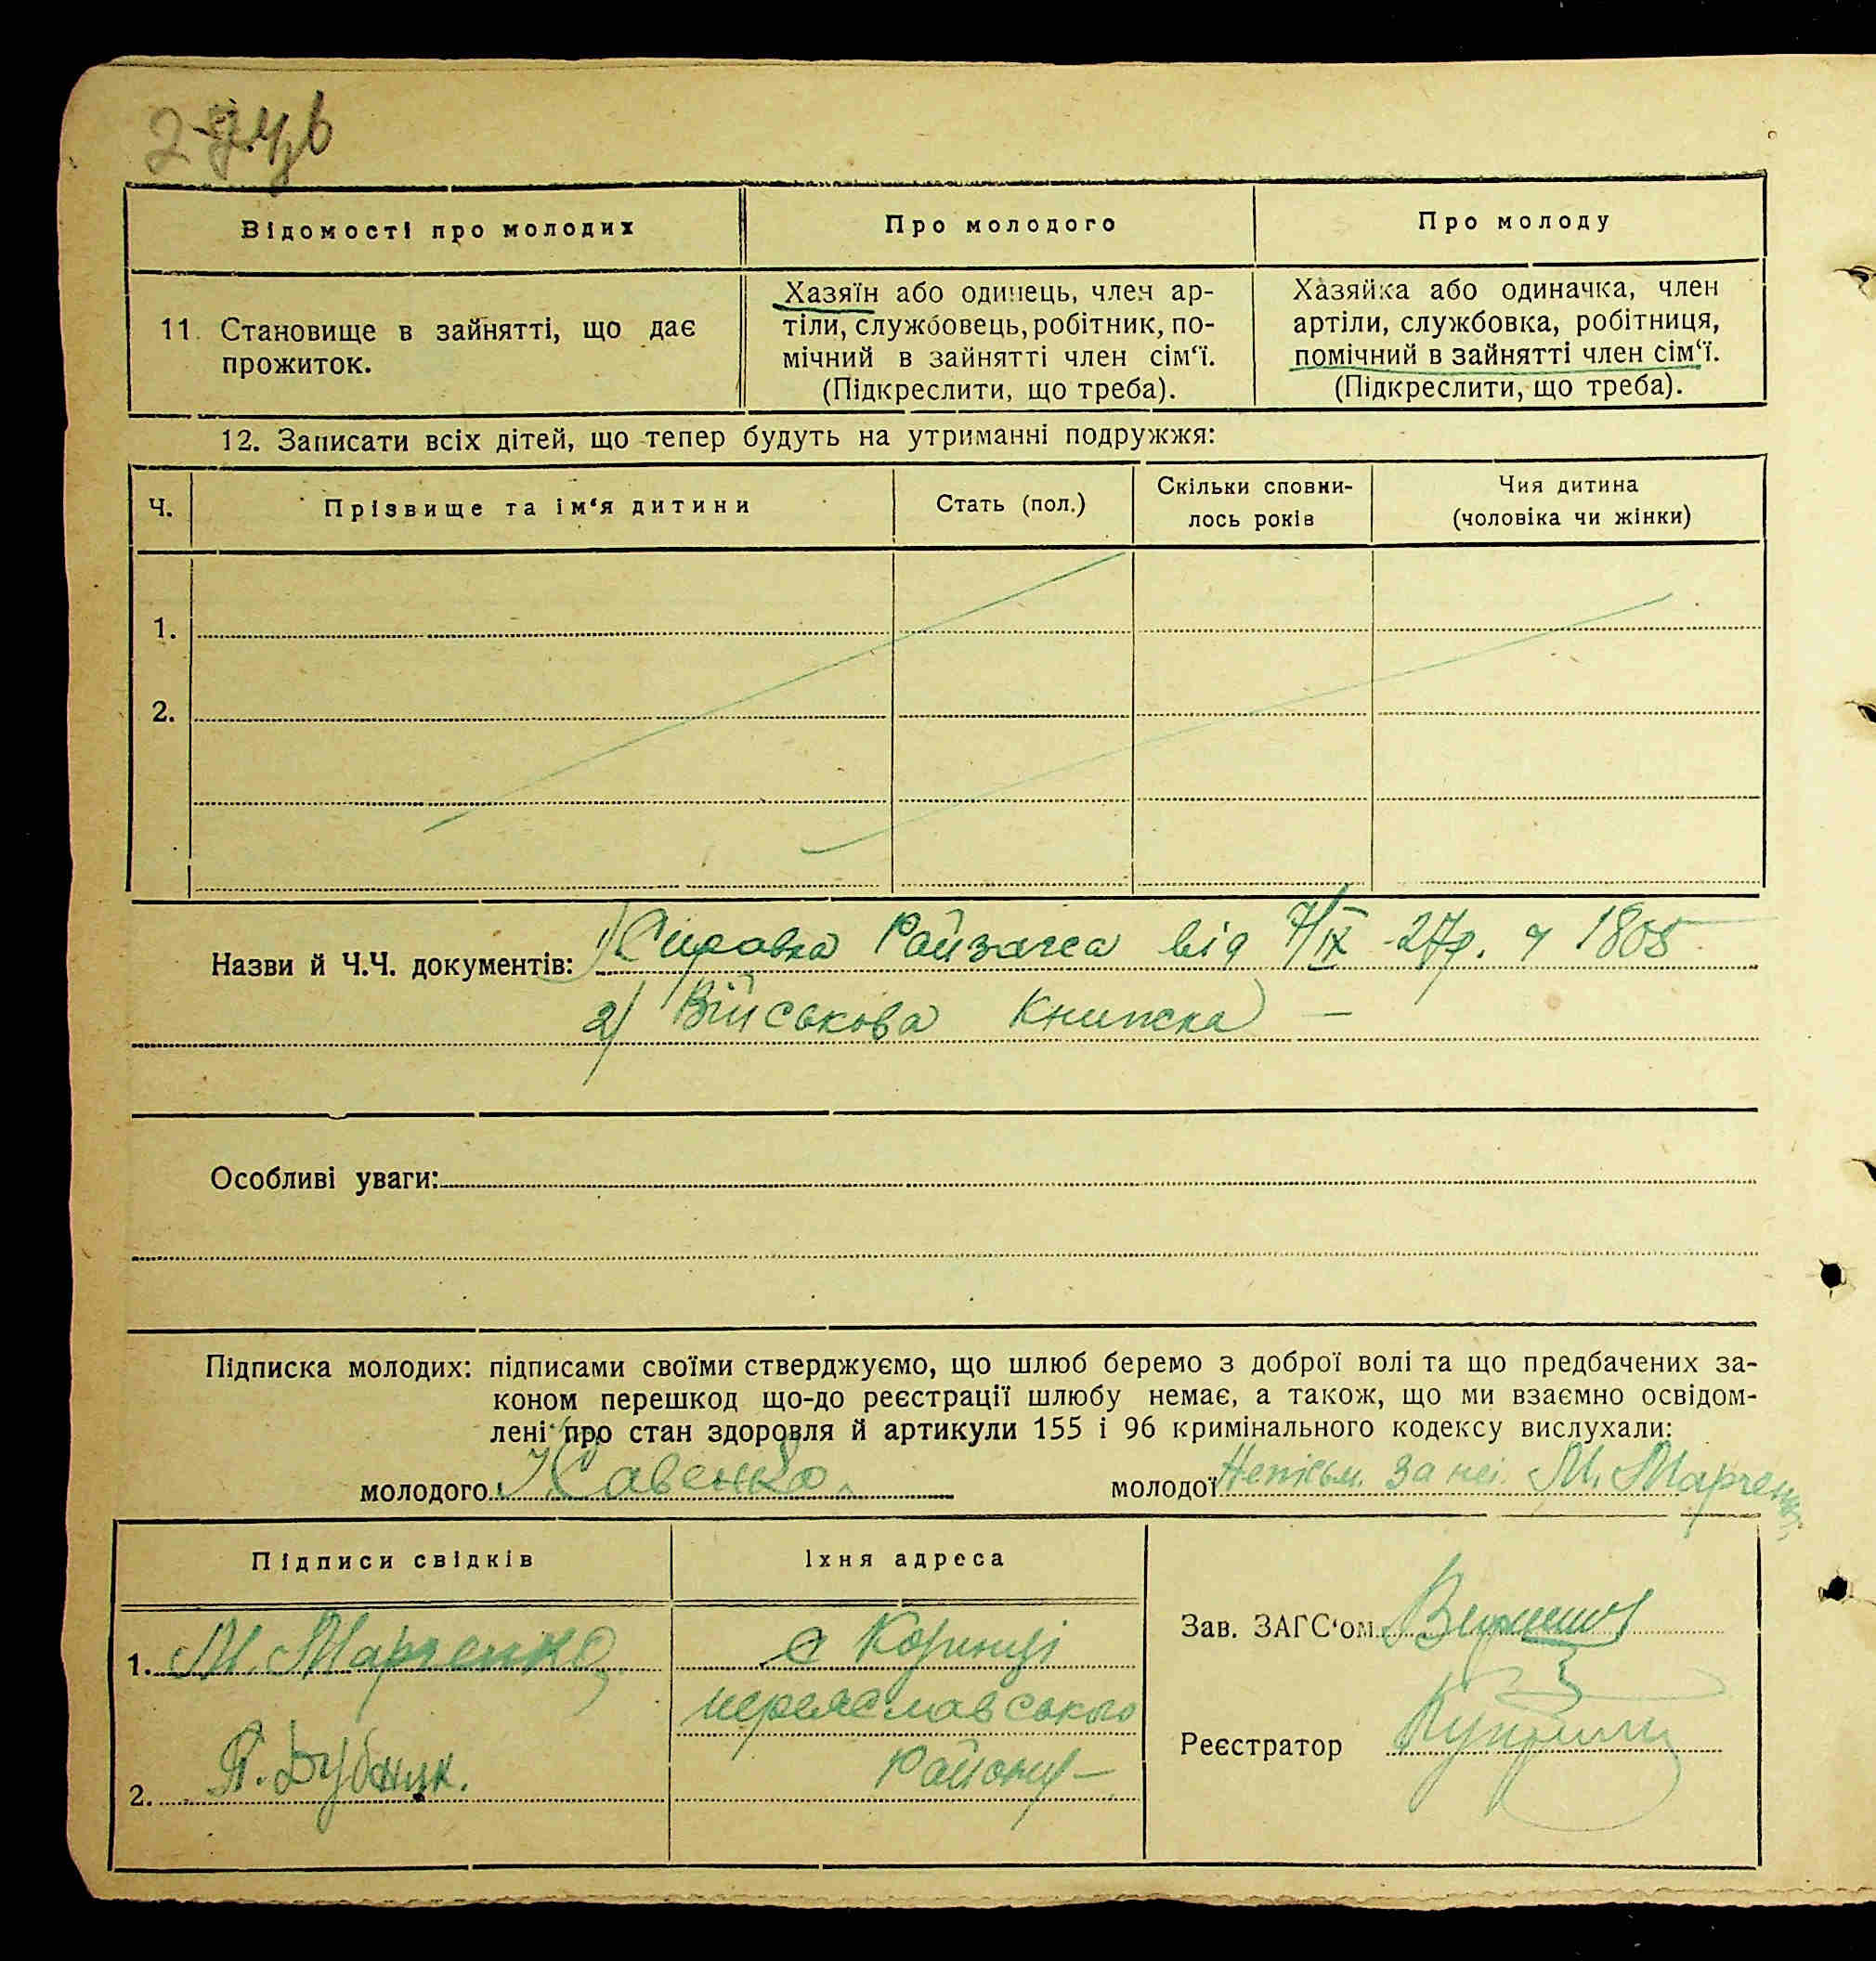 Відомості про молодих
Про молодого
Про молоду
11. Становище в зайнятті, що дає
прожиток.
Хазяїн або одинець, член ар-
тіли, службовець, робітник, по-
мічний в зайнятті член сім‘ї.
(Підкреслити, що треба).
Хазяйка або одиначка, член
артіли, службовка, робітниця,
помічний в зайнятті член сім‘ї.
(Підкреслити, що треба).
12. Записати всіх дітей, що тепер будуть на утриманні подружжя:
Ч.
Прізвище та ім‘я дитини
Стать (пол.)
Скільки сповни-
лось років
Чия дитина
(чоловіка чи жінки)
1.
2.
Назви й Ч.Ч. документів: 1) Справка Райзагса від 7/IX -27р. ч 1805
2) Військова Книжка —
Особливі уваги:
Підписка молодих: підписами своїми стверджуємо, що шлюб беремо з доброї волі та що предбачених за-
коном перешкод що-до реєстрації шлюбу немає, а також, що ми взаємно освідом-
лені про стан здоровля й артикули 155 і 96 кримінального кодексу вислухали:
молодого Савенко
молодої Неписьм. За неї М. Марченко
Підписи свідків
Їхня адреса
1. М. Марченко
с Корінці
переяславського
Району —
2. Дубняк.
Зав. ЗАГС‘ом
Реєстратор